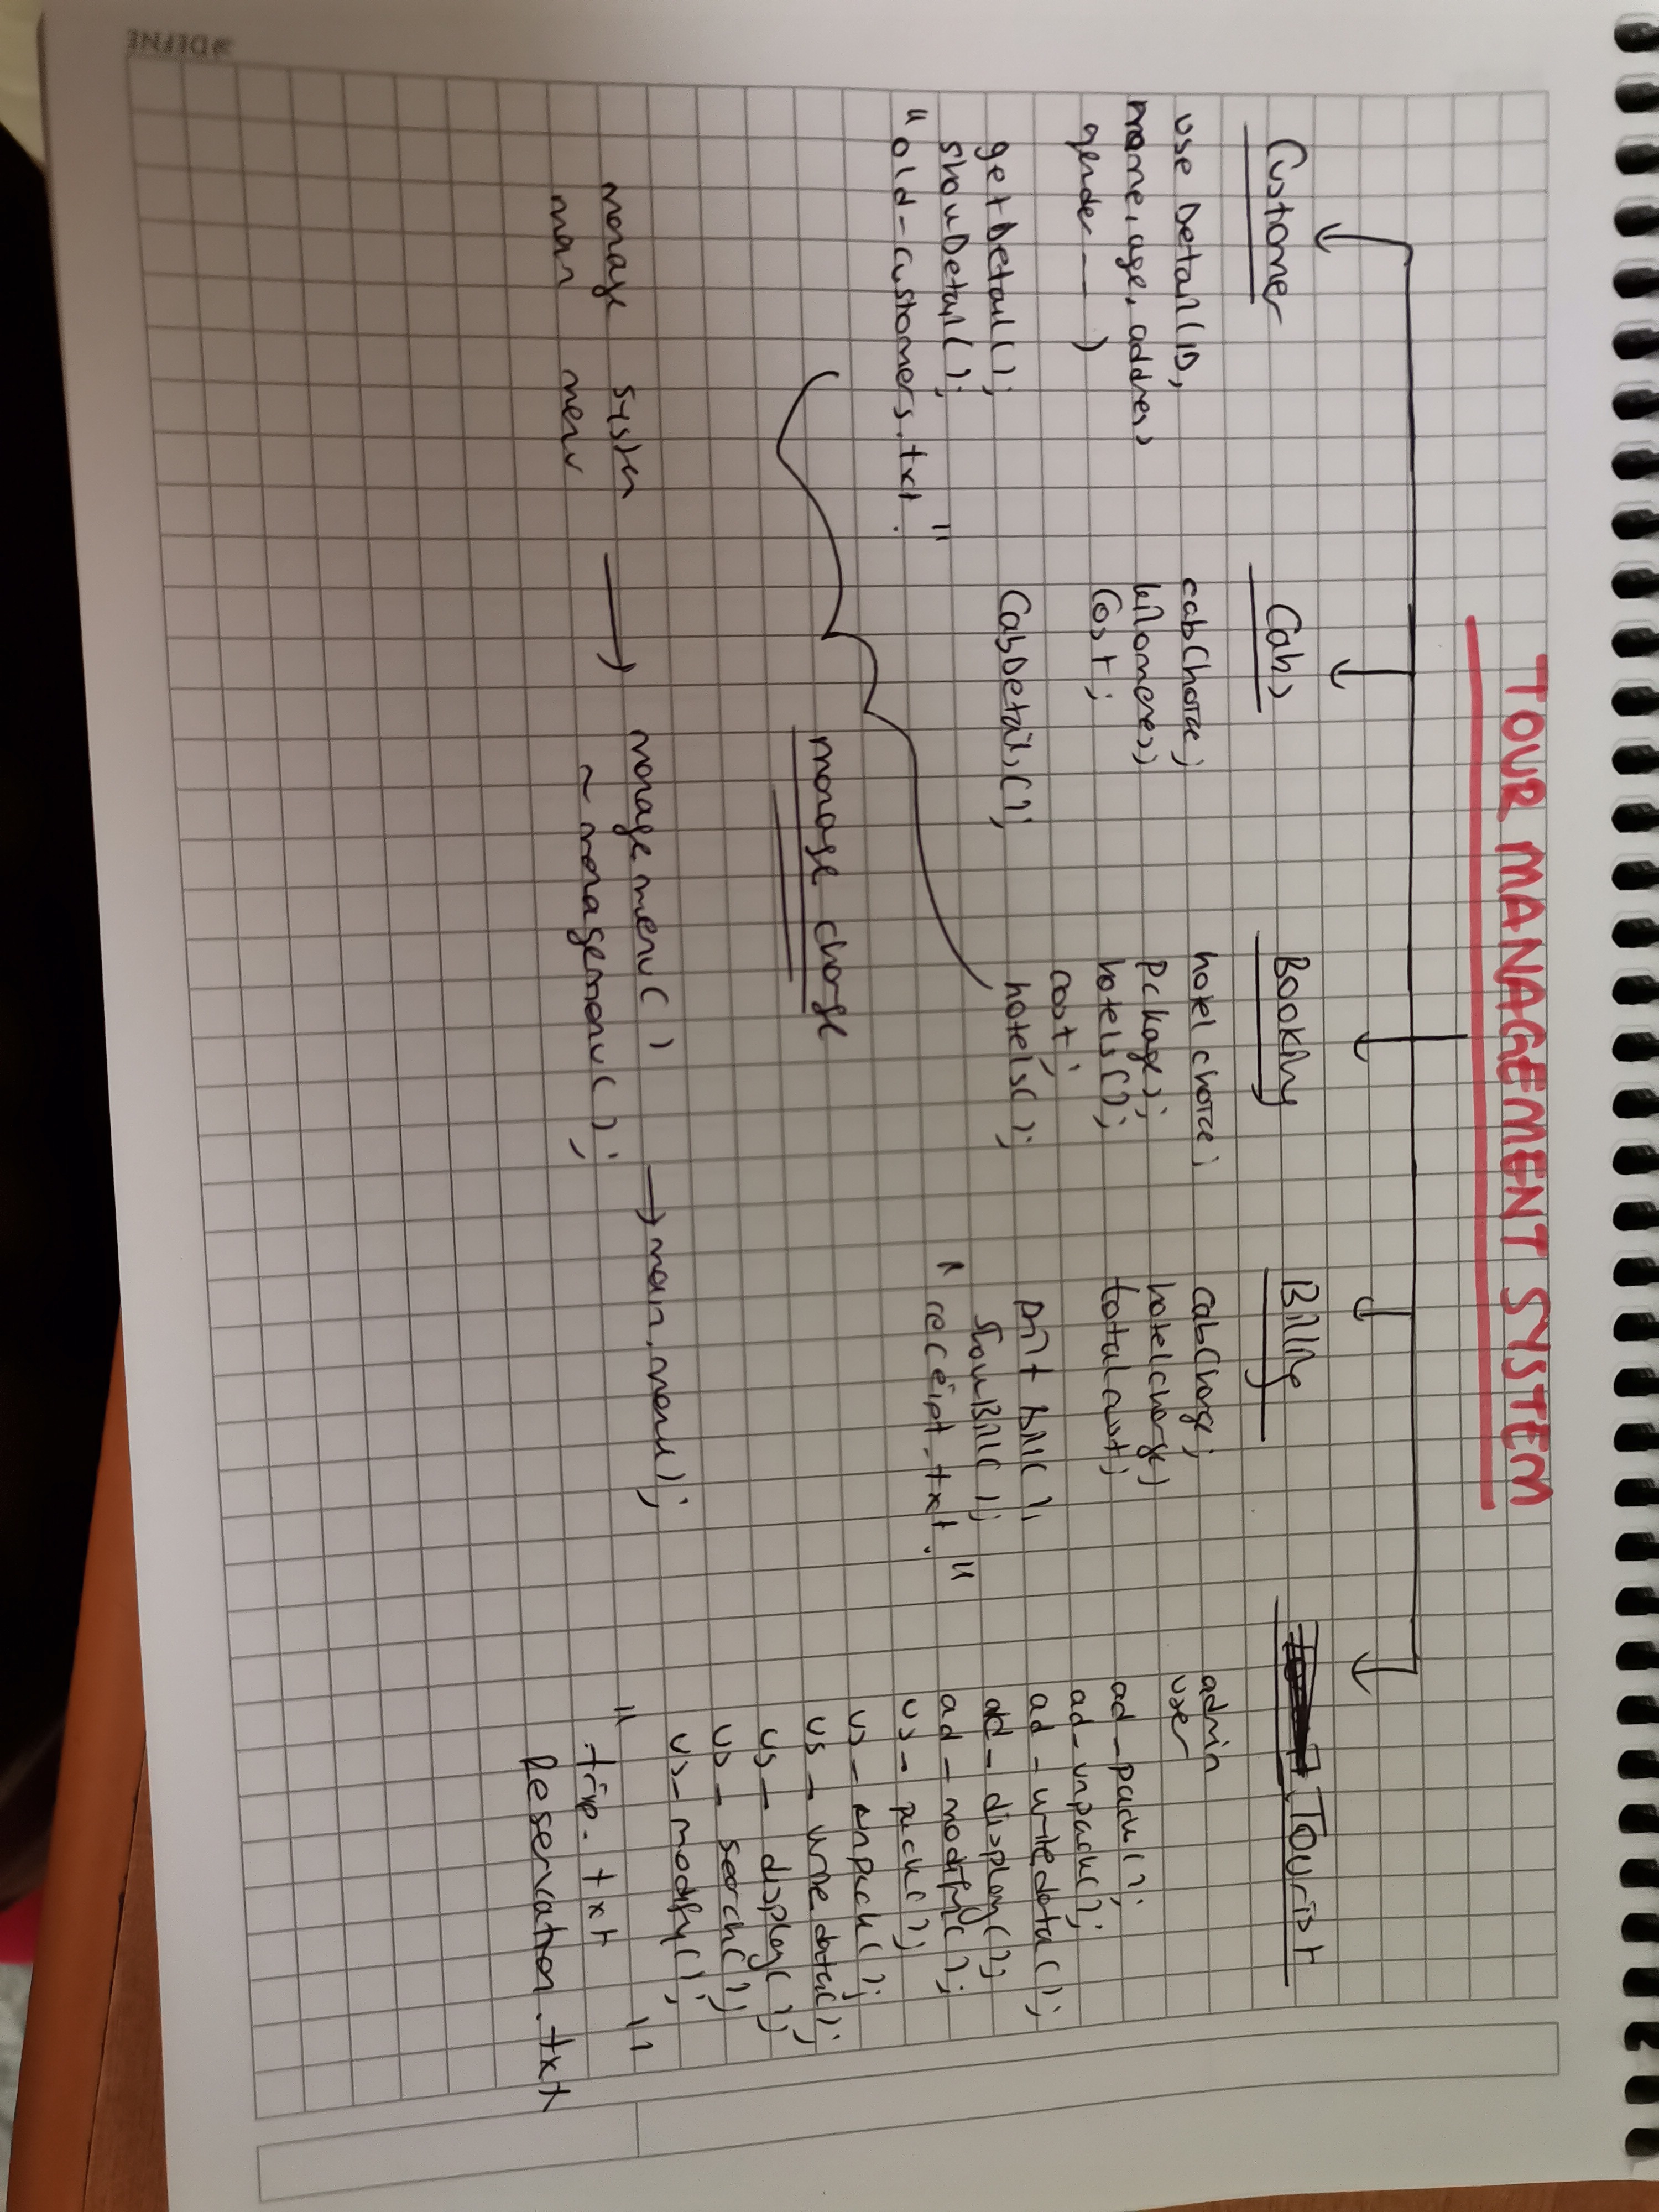 TOUR MANAGEMENT SYSTEM
Customer
use Detail (ID,
name, age, address
gender — )
getDetail();
showDetail();
"old-customers.txt."
Cabs
cabChoice;
kilometres;
Cost;
CabDetails();
Booking
hotel choice;
package;
hotels();
cost;
hotels();
Billing
cabCharge;
hotelcharge;
totalcost;
print Bill();
ShowBill();
"receipt.txt."
Tourist
admin
user
ad-pack();
ad-unpack();
ad-writedata();
ad-display();
ad-modify();
us-pack();
us-unpack();
us-write data();
us-display();
us-search();
us-modify();
"trip.txt"
Reservation.txt
manage charge
manage system
main menu
→ managemenu()
~managemenu();
→ main.menu);
DEFNE